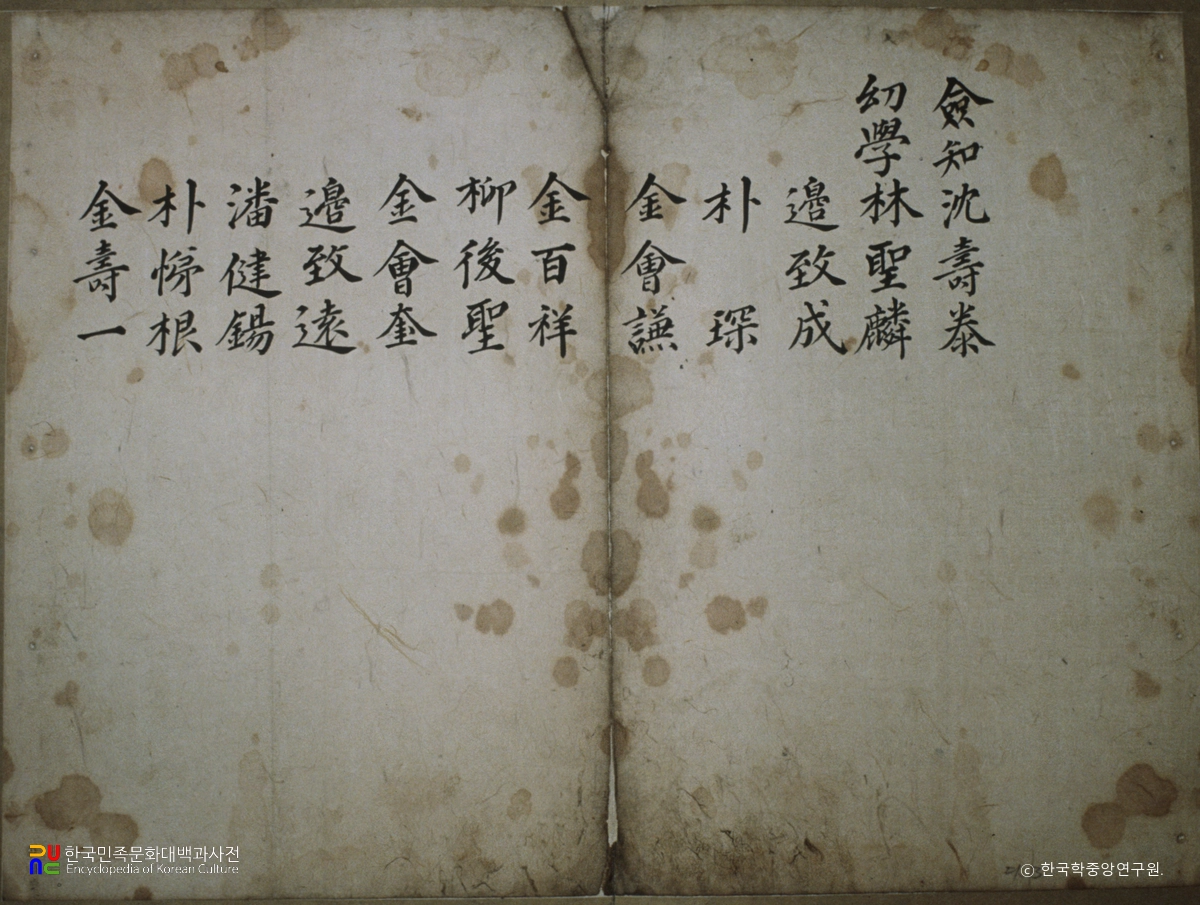 僉知沈壽泰
幼學林聖麟
邉致成
朴琛
金會謙
金百祥
柳後聖
金會奎
邉致遠
潘健錫
朴悌根
金壽一
한국민족문화대백과사전
Encyclopedia of Korean Culture
ⓒ 한국학중앙연구원.